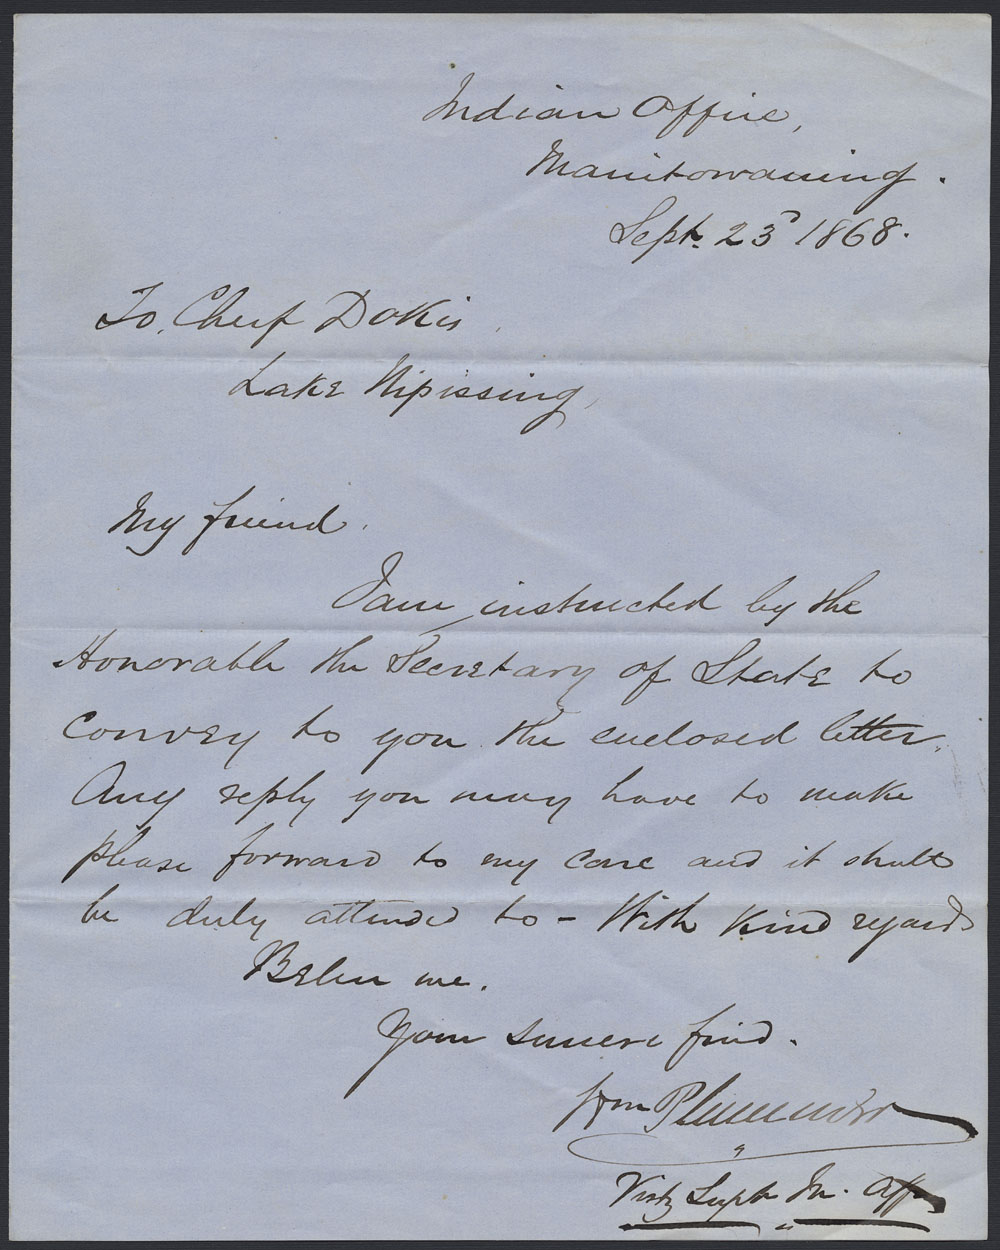 Indian Office,
Manitowaning.
Sept. 23d 1868.
To, Cheif Dokis,
Lake Nipissing,
My friend.
I am instructed by the
Honorable the Secretary of State to
convey to you the enclosed letter.
Any reply you may have to make
please forward to my care and it shall
be duly attended to – With kind regards
Beleive me.
Your sincere friend.
Wm Plummer
Visitg Supt In. Affrs